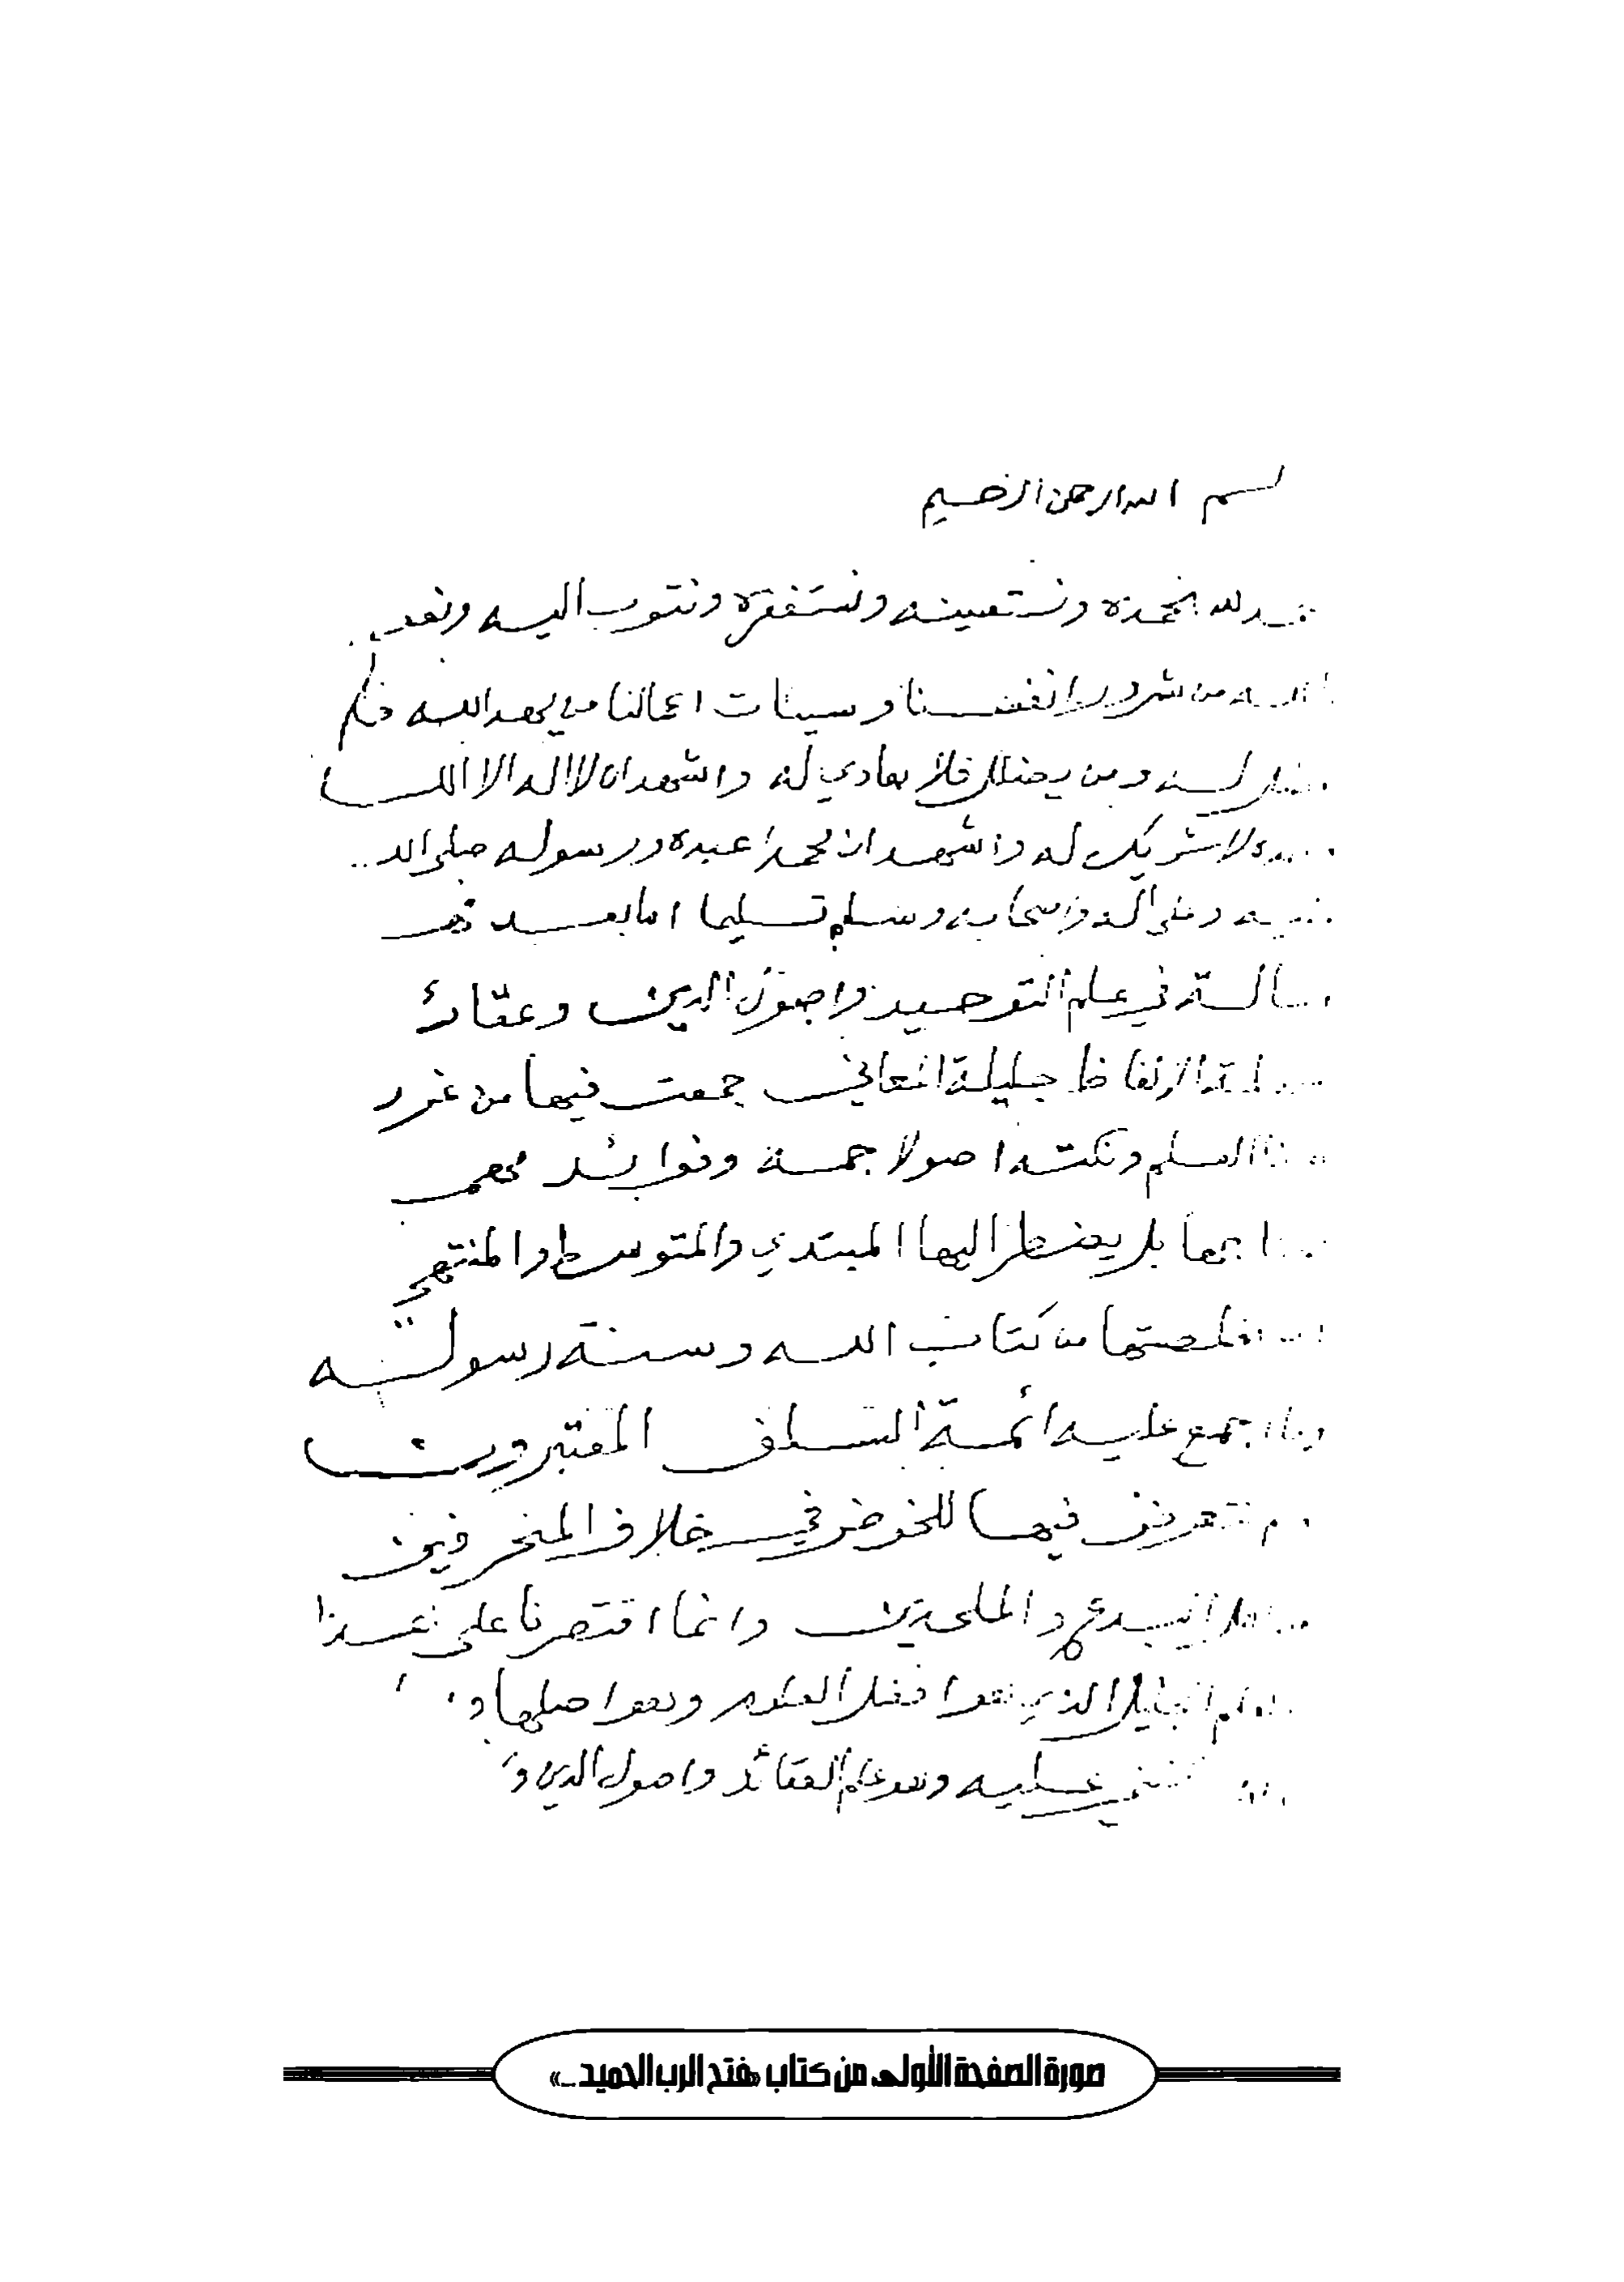 بسم الله الرحمن الرحيم
لله نحمده ونستعينه ونستغفره ونتوب اليه ونعوذ
من شرور انفسنا وسيئات اعمالنا من يهد الله فلا
له ومن يضلل فلا هادي له واشهد ان لا اله الا الله
لا شريك له واشهد ان محمدا عبده ورسوله صلى الله
وعلى آله واصحابه وسلم تسليما اما بعد فهذه
رسالة في علم التوحيد واصول الدين وعقائد
الالفاظ جليلة المعاني جمعت فيها من غرر
العلم ونكته اصولا جمة وفوائد مهمة
بها بل يضطر اليها المبتدي والمتوسط والمنتهي
لخصتها من كتاب الله وسنة رسوله
وما اجمع عليه ائمة السلف المعتبرون
نتعرض فيها للخوض في خلاف المنحرفين
اهل البدع والملحدين وانما اقتصرنا على هذا
الجليل الذي هو افضل العلوم وهو اصلها
عليه وهو علم العقائد واصول الدين
صورة الصفحة الأولى من كتاب «فتح الرب الحميد..»